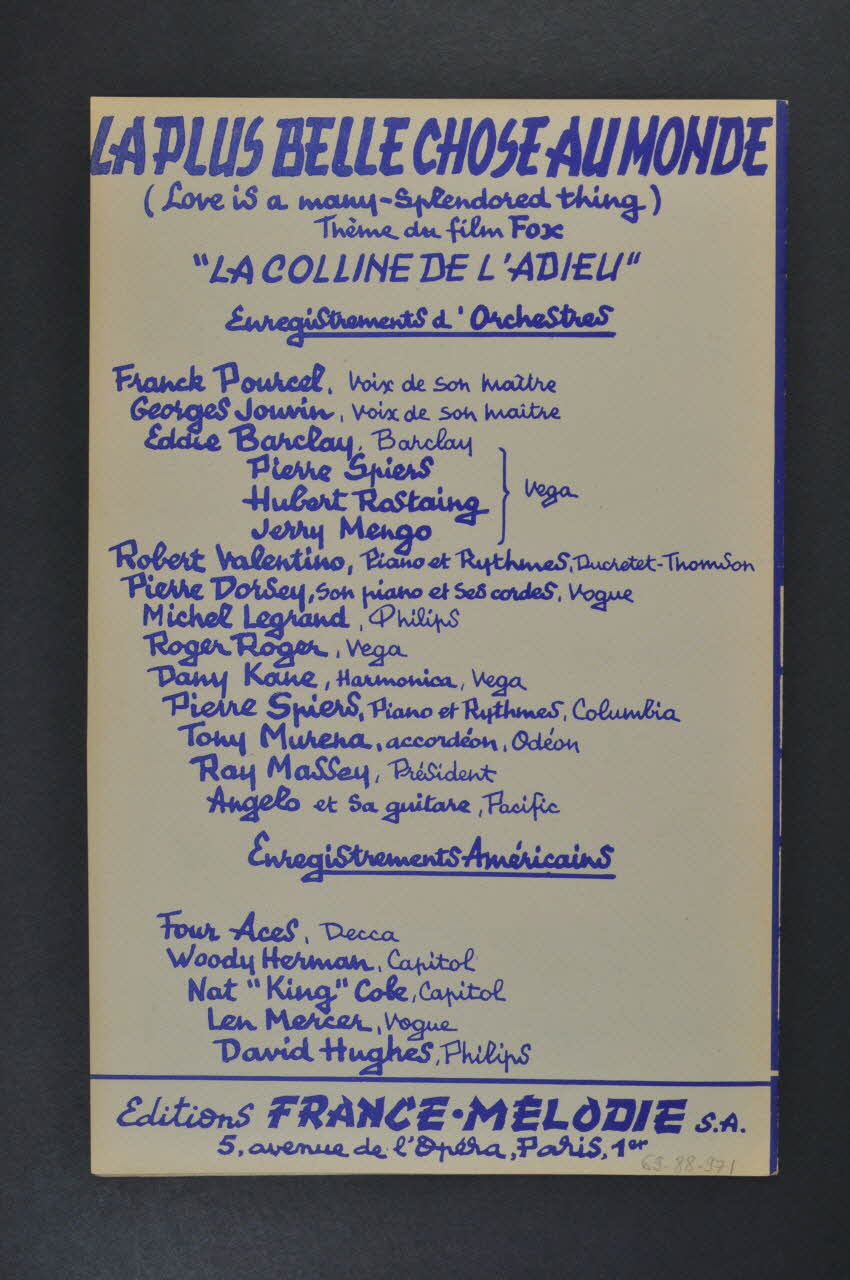 LA PLUS BELLE CHOSE AU MONDE
(Love is a many-splendored thing)
Thème du film Fox
"LA COLLINE DE L'ADIEU"
Enregistrements d'Orchestres
Franck Pourcel, Voix de son maître
Georges Jouvin, Voix de son maître
Eddie Barclay, Barclay
Pierre Spiers
Hubert Rostaing } Vega
Jerry Mengo
Robert Valentino, Piano et Rythmes, Ducretet-Thomson
Pierre Dorsey, son piano et ses cordes, Vogue
Michel Legrand, Philips
Roger Roger, Vega
Dany Kane, Harmonica, Vega
Pierre Spiers, Piano et Rythmes, Columbia
Tony Murena, accordéon, Odéon
Ray Massey, Président
Angelo et sa guitare, Pacific
Enregistrements Américains
Four Aces, Decca
Woody Herman, Capitol
Nat "King" Cole, Capitol
Len Mercer, Vogue
David Hughes, Philips
Editions FRANCE-MÉLODIE S.A.
5, avenue de l'Opéra, Paris, 1er
69-88-971